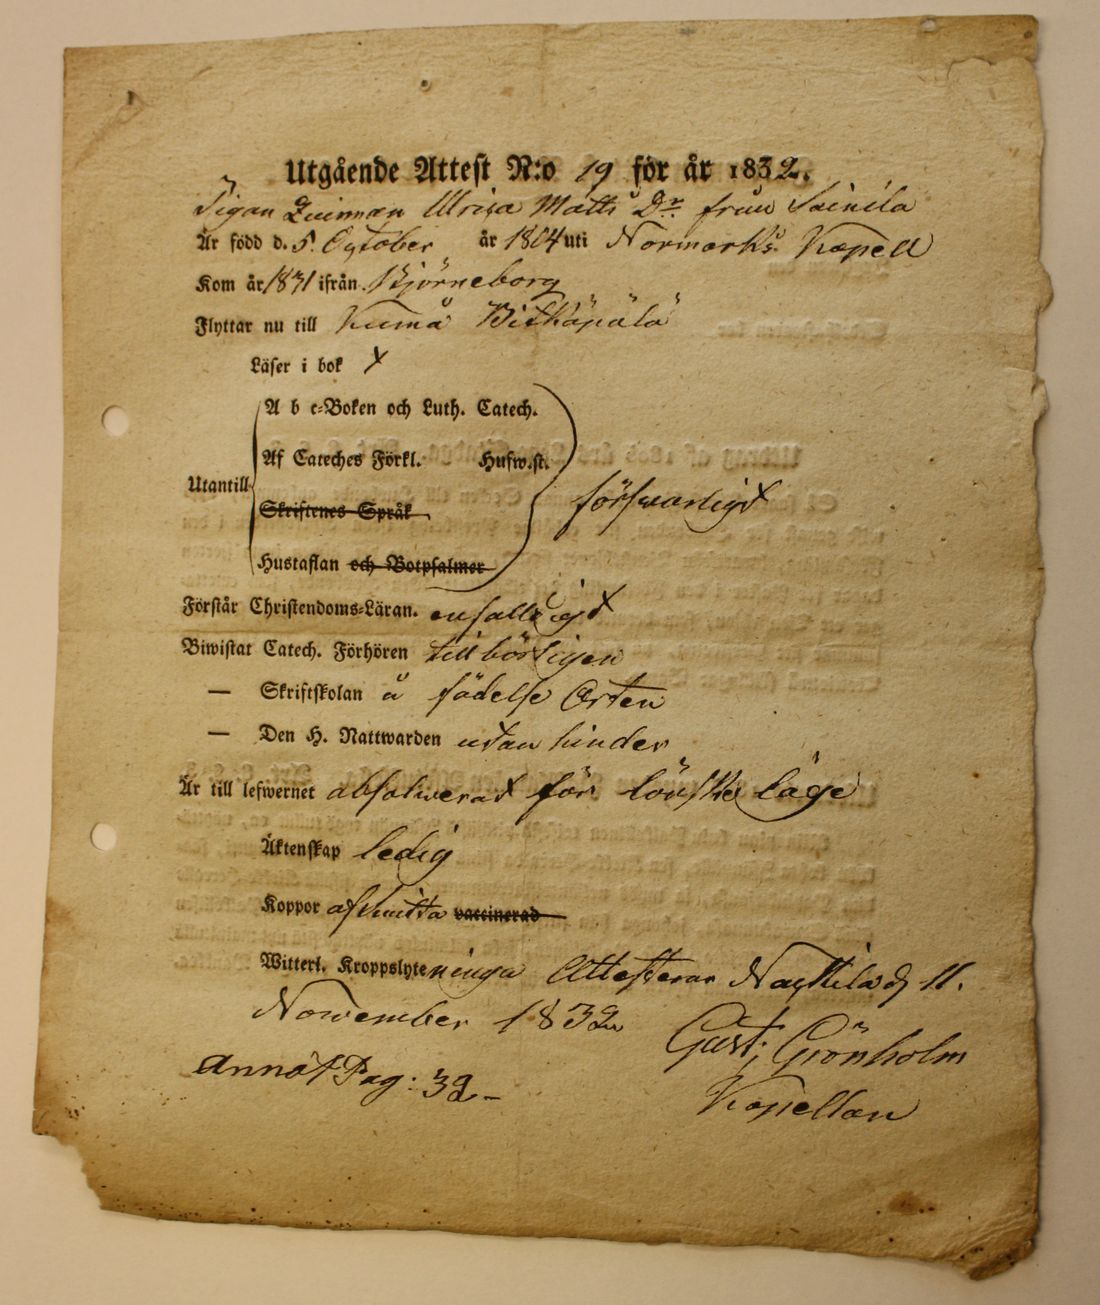 Utgående Attest N:o 19 för år 1832.
Tigan Qvinnan Ulrica Matts Dr. från Sainila
Är född d. 5 October år 1804 uti Normarks Kapell
Kom år 1831 ifrån Björneborg
Flyttar nu till Kumå Pitkäpälä
Läser i bok x
A b c-Boken och Luth. Catech.
Af Cateches Förkl. Husw.st.
Utantill försvarligt
Skriftenes Språk
Hustaflan och Botpsalmer
Förstår Christendoms-Läran. enfalldigt
Biwistat Catech. Förhören tillbörligen
— Skriftskolan å födelse Orten
— Den H. Nattwarden utan hinder
Är till lefwernet absolverad för lönskaläge
Äktenskap ledig
Koppor afhvitta vaccinerad
Witterl. Kroppslyte ninga Attesterar Nackila d. 11.
November 1832
Gust; Grönholm
Annot Pag: 32-
Kapellan